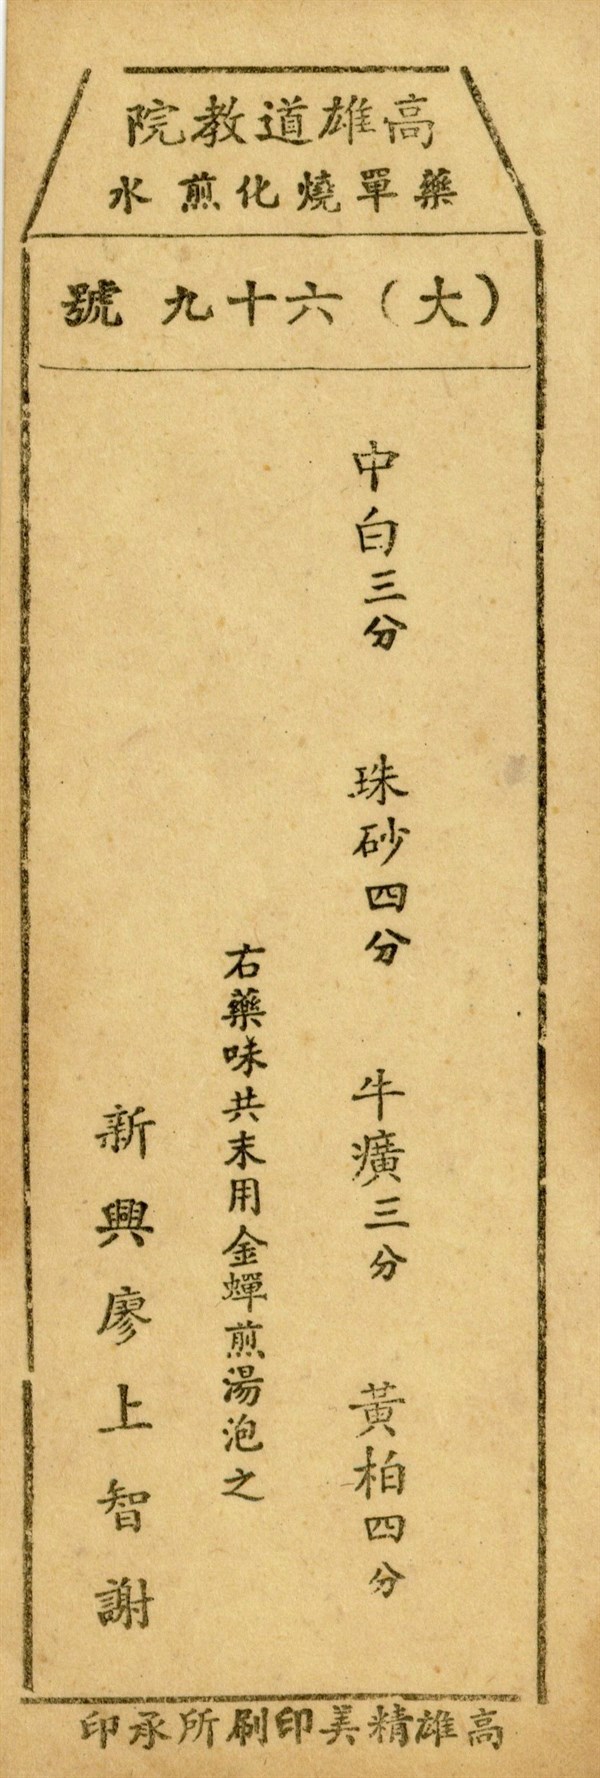 高雄道教院
藥單燒化煎水
（大）六十九號
中白三分　珠砂四分　牛癀三分　黃柏四分
右藥味共末用金蟬煎湯泡之
新興廖上智謝
高雄精美印刷所承印